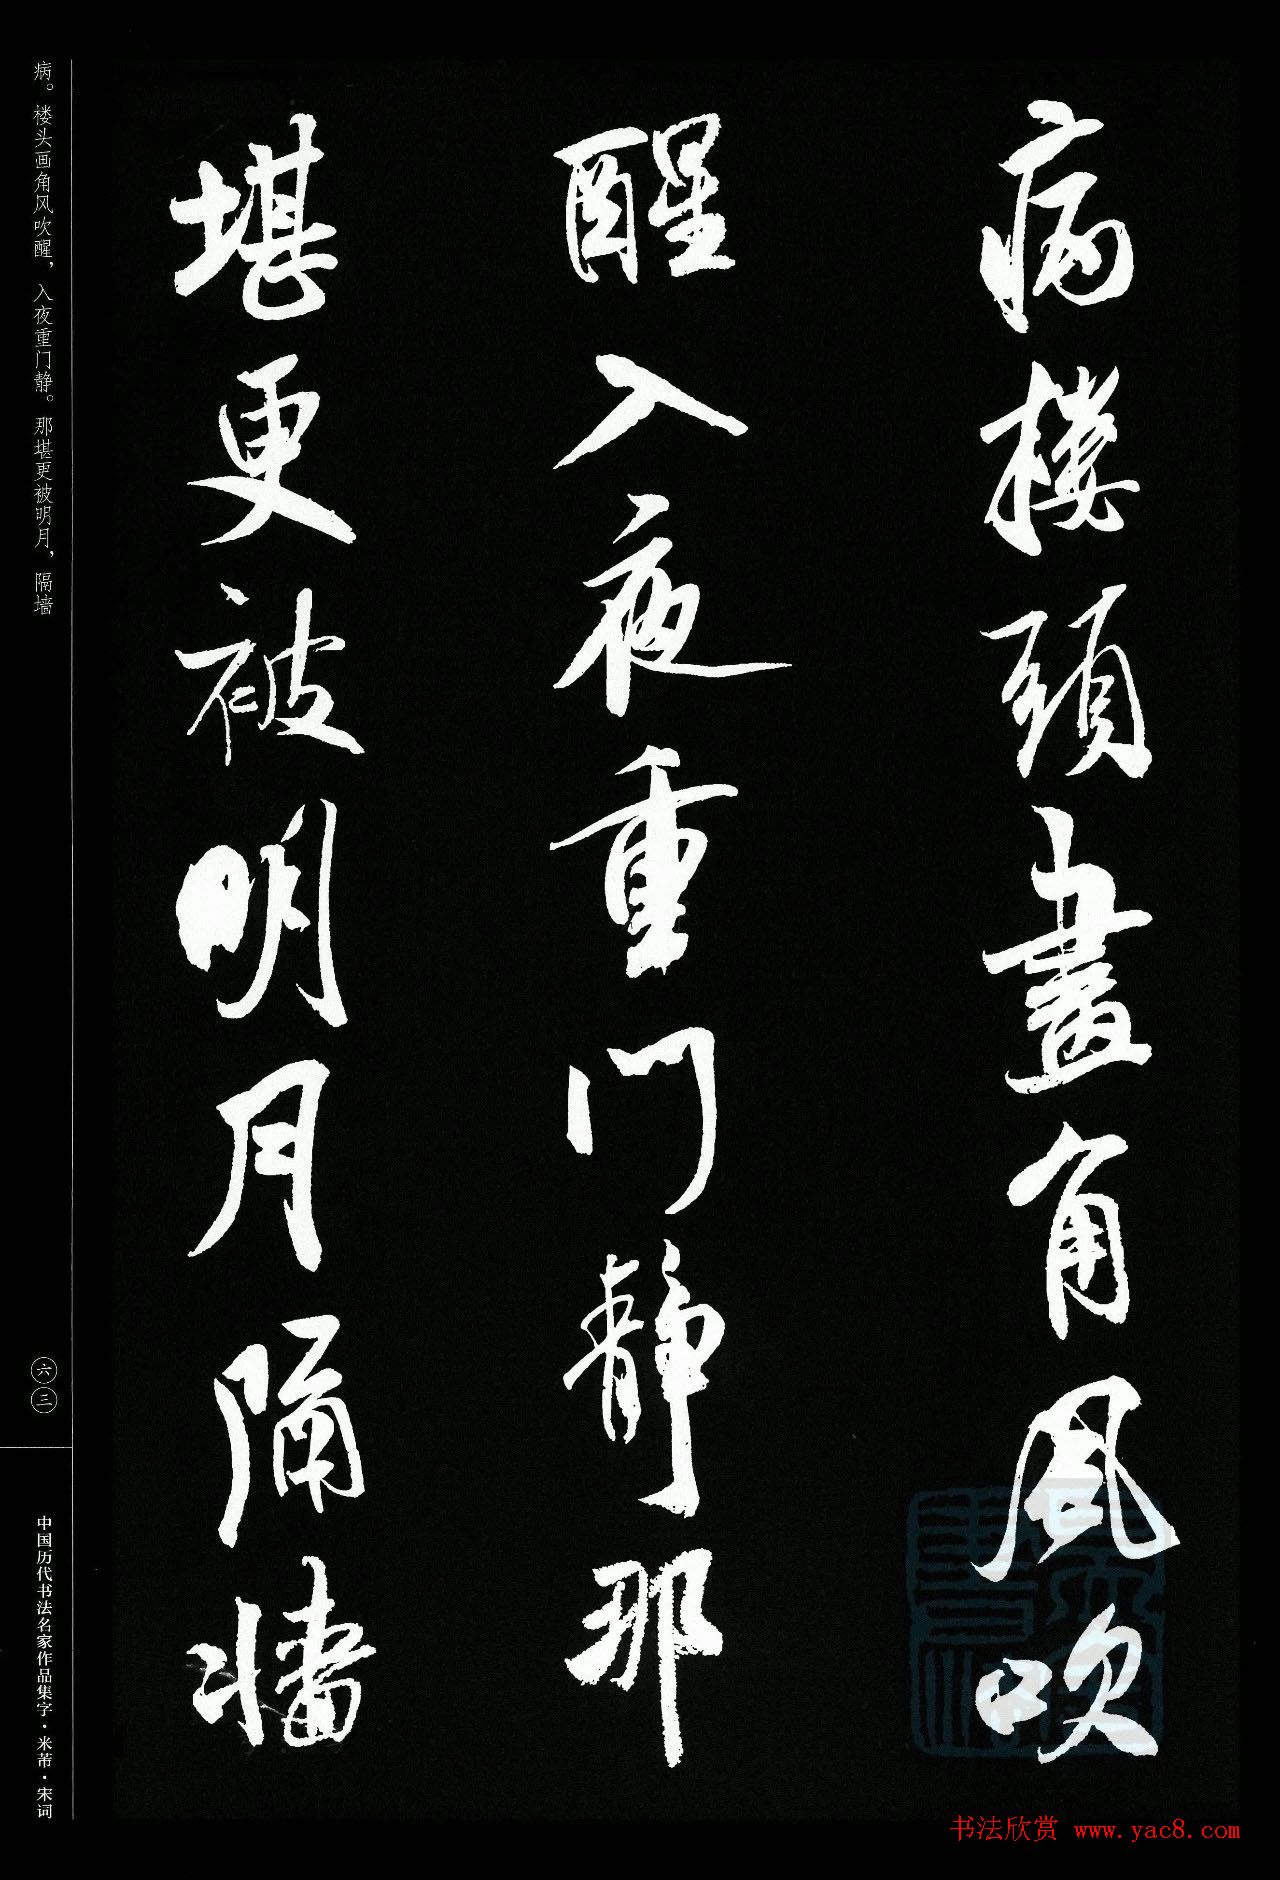 病樓頭畫角風吹
醒入夜重門静那
堪更被明月隔墻
病。楼头画角风吹醒，入夜重门静。那堪更被明月，隔墙
六三
中国历代书法名家作品集字·米芾·宋词
书法欣赏 www.yac8.com